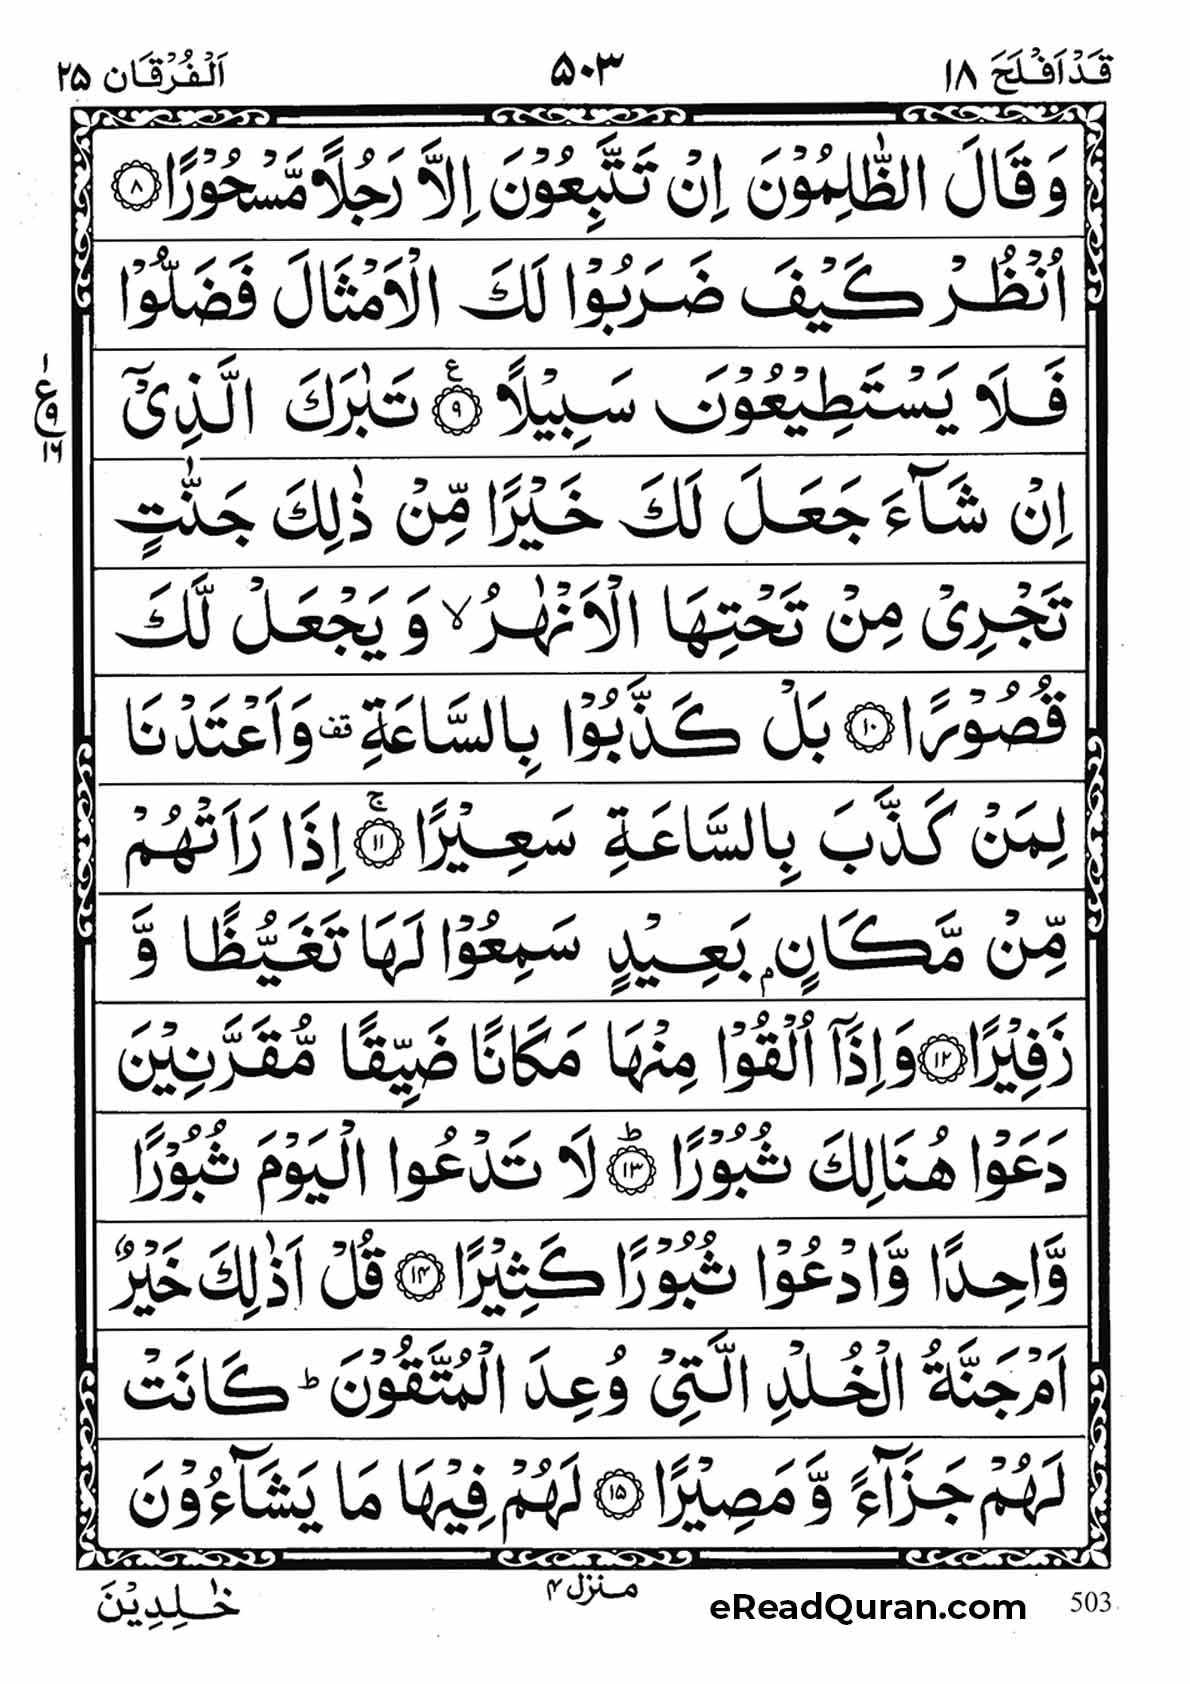 قَدْ اَفْلَحَ ١٨
٥٠٣
اَلْفُرْقَان ٢٥
وَ قَالَ الظّٰلِمُوْنَ اِنْ تَتَّبِعُوْنَ اِلَّا رَجُلًا مَّسْحُوْرًا ﴿٨﴾
اُنْظُرْ كَيْفَ ضَرَبُوْا لَكَ الْاَمْثَالَ فَضَلُّوْا
فَلَا يَسْتَطِيْعُوْنَ سَبِيْلًا ﴿٩﴾ ع تَبٰرَكَ الَّذِيْٓ
١
ع
٩
١٦
اِنْ شَآءَ جَعَلَ لَكَ خَيْرًا مِّنْ ذٰلِكَ جَنّٰتٍ
تَجْرِيْ مِنْ تَحْتِهَا الْاَنْهٰرُ لا وَ يَجْعَلْ لَّكَ
قُصُوْرًا ﴿١٠﴾ بَلْ كَذَّبُوْا بِالسَّاعَةِ قف وَاَعْتَدْنَا
لِمَنْ كَذَّبَ بِالسَّاعَةِ سَعِيْرًا ﴿١١﴾ ج اِذَا رَاَتْهُمْ
مِّنْ مَّكَانٍۭ بَعِيْدٍ سَمِعُوْا لَهَا تَغَيُّظًا وَّ
زَفِيْرًا ﴿١٢﴾ وَاِذَآ اُلْقُوْا مِنْهَا مَكَانًا ضَيِّقًا مُّقَرَّنِيْنَ
دَعَوْا هُنَالِكَ ثُبُوْرًا ﴿١٣﴾ ط لَا تَدْعُوا الْيَوْمَ ثُبُوْرًا
وَّاحِدًا وَّادْعُوْا ثُبُوْرًا كَثِيْرًا ﴿١٤﴾ قُلْ اَذٰلِكَ خَيْرٌ
اَمْ جَنَّةُ الْخُلْدِ الَّتِيْ وُعِدَ الْمُتَّقُوْنَ ط كَانَتْ
لَهُمْ جَزَآءً وَّ مَصِيْرًا ﴿١٥﴾ لَهُمْ فِيْهَا مَا يَشَآءُوْنَ
منزل ٤
خٰلِدِيْنَ
eReadQuran.com
503